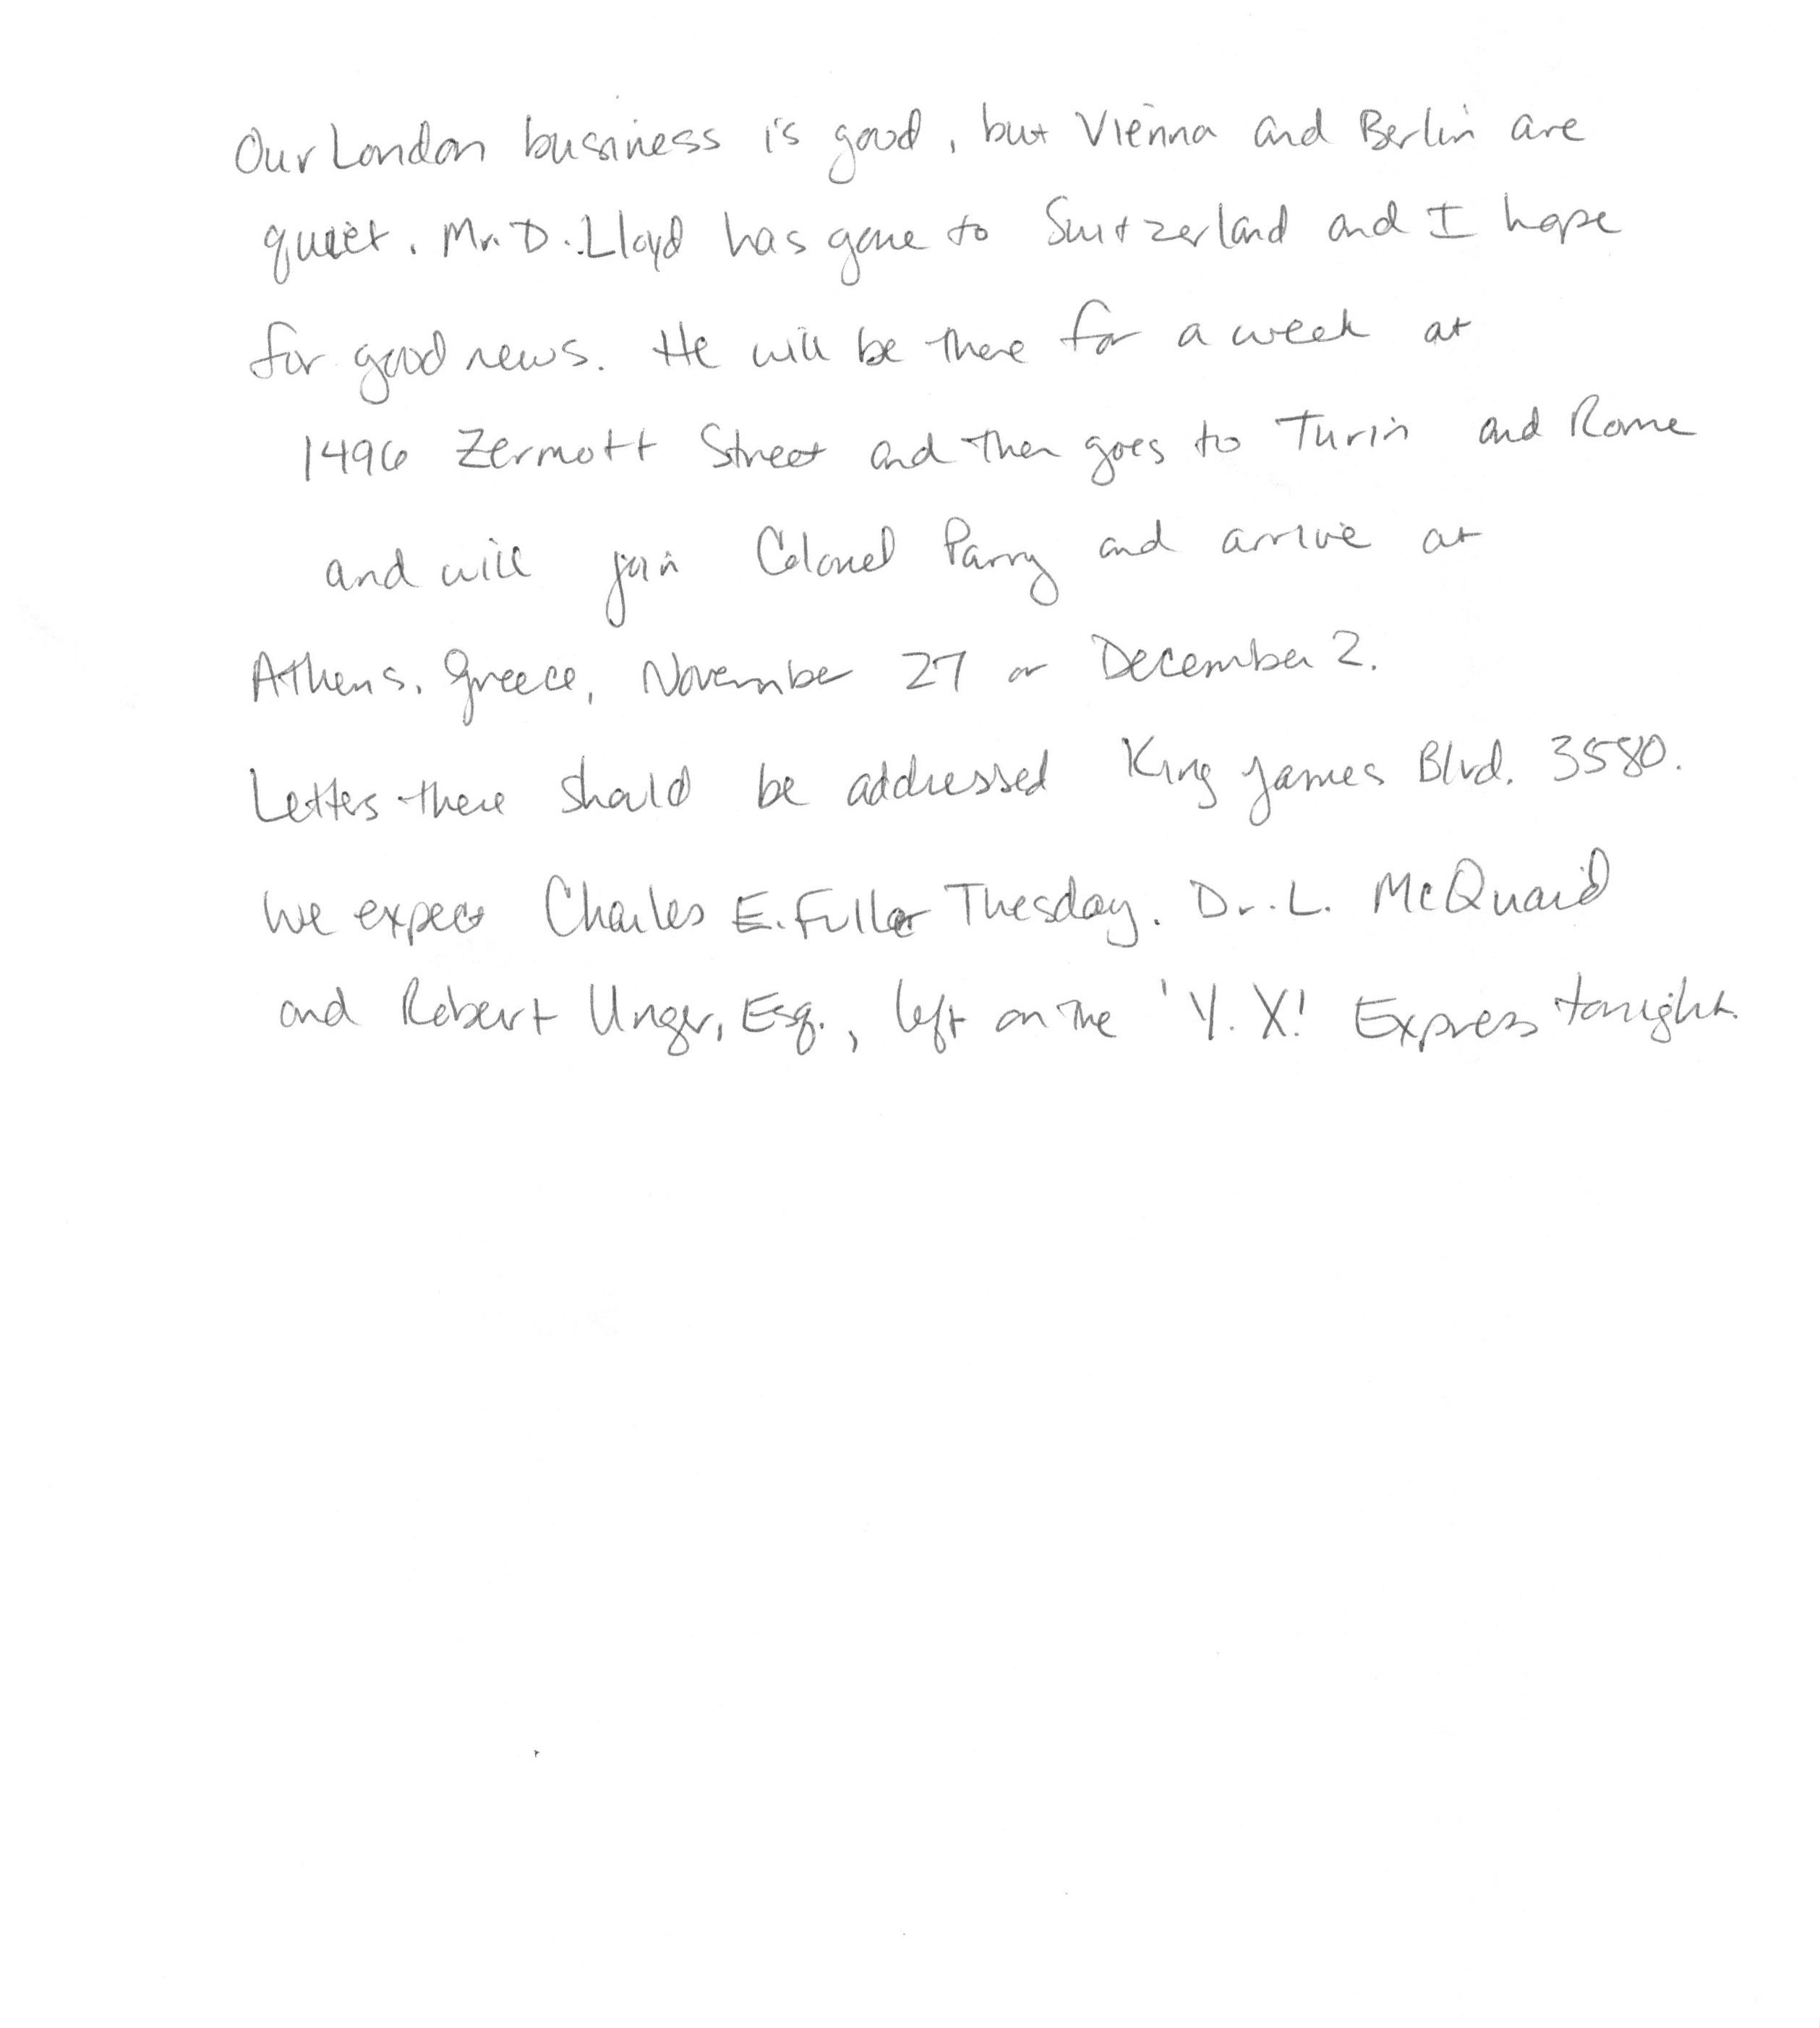 Our London business is good, but Vienna and Berlin are
quiet. Mr. D. Lloyd has gone to Switzerland and I hope
for good news. He will be there for a week at
1496 Zermott Street and then goes to Turin and Rome
and will join Colonel Parry and arrive at
Athens, Greece, November 27 or December 2.
Letters there should be addressed King James Blvd. 3580.
We expect Charles E. Fuller Thesday. Dr. L. McQuaid
and Robert Unger, Esq., left on the 'Y. X.' Express tonight.